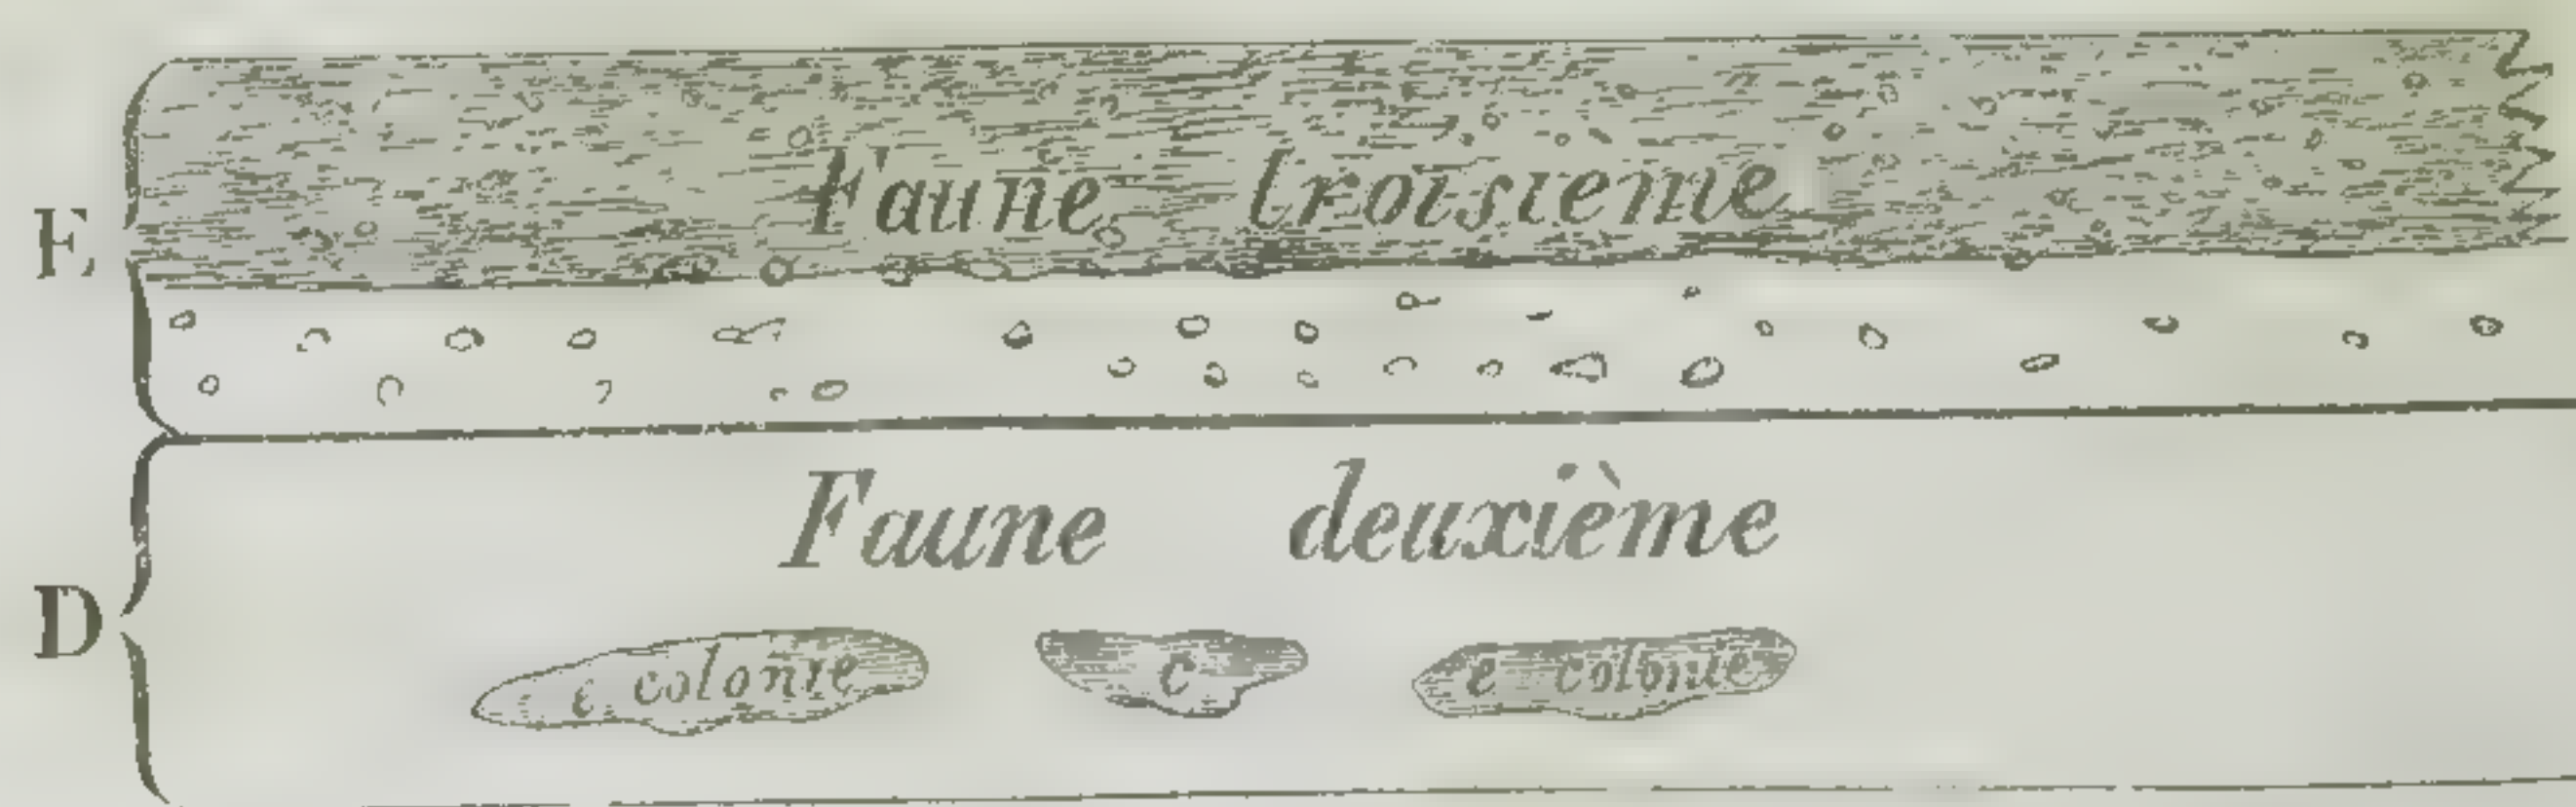 E
Faune troisième
Faune deuxième
D
e colonie c e colonie